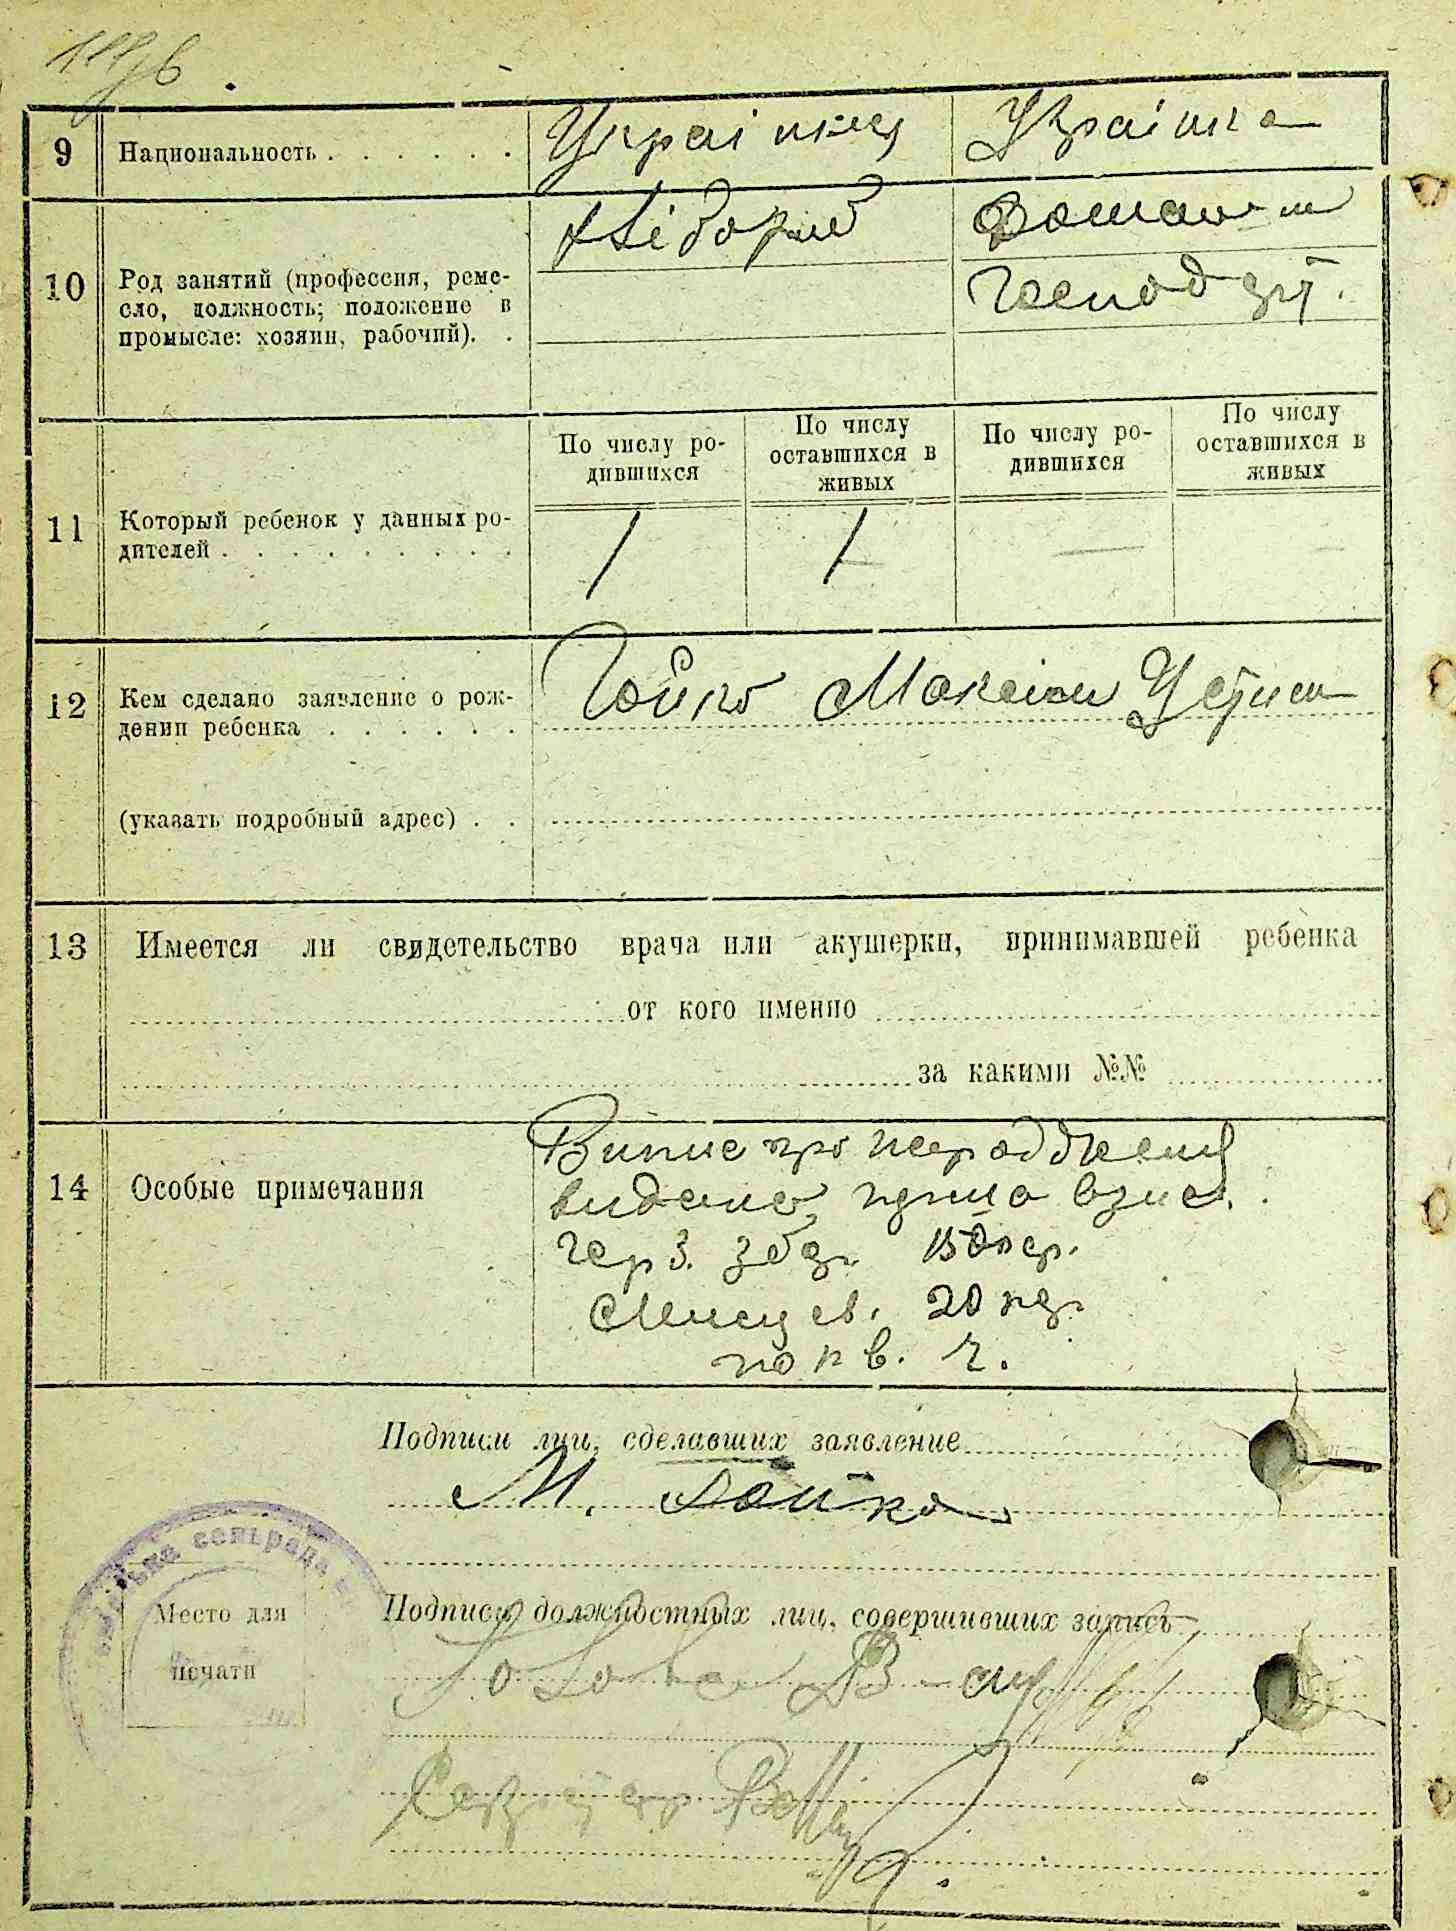 9 Национальность . . . . . . Українець Українка
10 Род занятий (профессия, реме-
сло, должность; положение в
промысле: хозяин, рабочий). .
Хлібороб Домашн
Господарт.
11 Который ребенок у данных ро-
дителей . . . . . . . . .
По числу ро-
дившихся
По числу
оставшихся в
живых
По числу ро-
дившихся
По числу
оставшихся в
живых
1 1 — —
12 Кем сделано заявление о рож-
дении ребенка . . . . . .
Гойко Максим Устим
(указать подробный адрес) . .
13 Имеется ли свидетельство врача или акушерки, принимавшей ребенка
от кого именно
за какими №№
14 Особые примечания
Випис про народження
видано,
20
кв. ч.
Подписи лиц, сделавших заявление
М. Гойко
Место для
печати
сельрада
Подписи должностных лиц, совершивших запись
Голова
Секретар